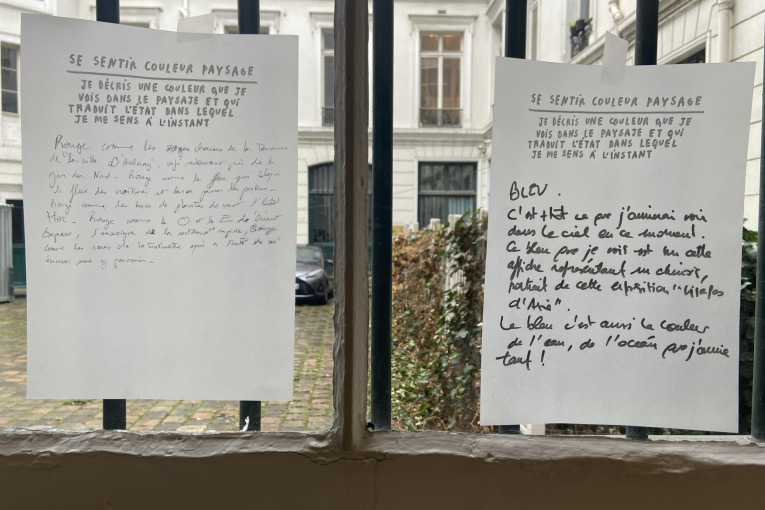 SE SENTIR COULEUR PAYSAGE
JE DÉCRIS UNE COULEUR QUE JE
VOIS DANS LE PAYSAJE ET QUI
TRADUIT L'ÉTAT DANS LEQUEL
JE ME SENS À L'INSTANT
Rouge comme les chaises de la Terrasse
de la ville D'Aulnay, café restaurant près de la
gare du Nord. Rouge comme le feu que
le flux des voitures et laisse passer les piétons.
Rouge comme les bacs de plantes devant l'hôtel
Rouge comme le O et le E de Orient
Express, l'enseigne de la restauration rapide, Rouge
comme les roues de la trottinette qui
SE SENTIR COULEUR PAYSAGE
JE DÉCRIS UNE COULEUR QUE JE
VOIS DANS LE PAYSAJE ET QUI
TRADUIT L'ÉTAT DANS LEQUEL
JE ME SENS À L'INSTANT
BLEU.
C'est + tôt ce que j'aimerai voir
dans le ciel en ce moment.
Ce bleu que je vois est sur cette
affiche représentant un chinois,
portrait de cette exposition "Visages
d'Asie".
Le bleu c'est aussi la couleur
de l'eau, de l'océan que j'aime
tant !